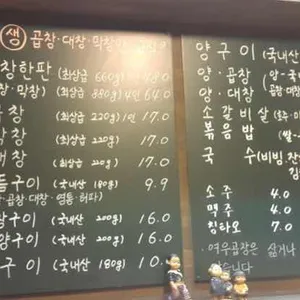 생 곱창·대창·막창
창한판 (최상급 660g) 48.0
창·막창) (최상급 880g) 4인 64.0
창 (최상급 220g) 1인 17.0
창 (최상급 220g) 17.0
창 (최상급 220g) 17.0
구이 (국내산 180g) 9.9
곱창·대창·염통·허파)
구이 (국내산 200g) 16.0
양구이 (국내산 200g) 16.0
구이 (국내산 180g) 10.
양구이 (국내산
양·곱창 (양·국
양·대창
소갈비살
볶음밥 (쌀
국수 (비빔·잔
김
소주 4.0
맥주 4.0
칭타오 7.0
여우곱창은 삶거나
습니다